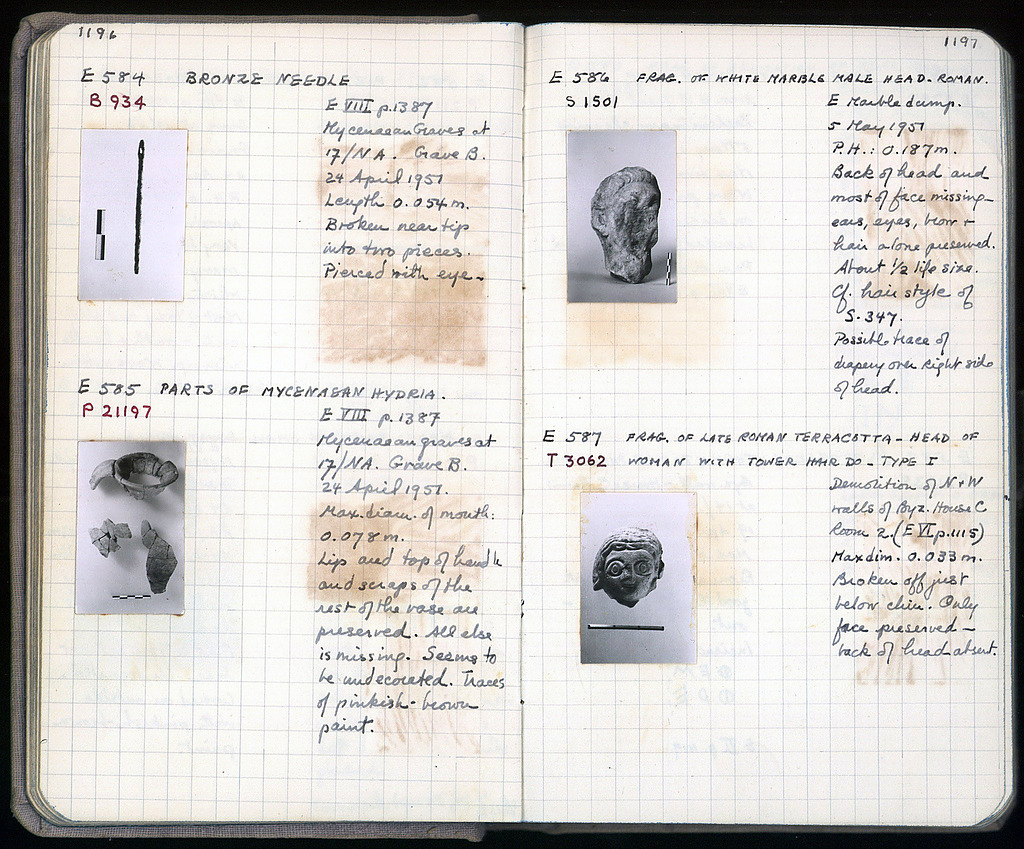 1196
E 584 BRONZE NEEDLE
B 934
E VIII p.1387
Mycenaean Graves at
17/NA. Grave B.
24 April 1951
Length 0.054 m.
Broken near tip
into two pieces.
Pierced with eye.
E 585 PARTS OF MYCENAEAN HYDRIA.
P 21197
E VIII p.1387
Mycenaean graves at
17/NA. Grave B.
24 April 1951.
Max. diam. of mouth:
0.078 m.
Lip and top of handle
and scraps of the
rest of the vase are
preserved. All else
is missing. Seems to
be undecorated. Traces
of pinkish-brown
paint.
1197
E 586 FRAG. OF WHITE MARBLE MALE HEAD - ROMAN.
S 1501
E Marble dump.
5 May 1951
P.H.: 0.187 m.
Back of head and
most of face missing -
ears, eyes, brow +
hair alone preserved.
About 1/2 life size.
Cf. hair style of
S. 347.
Possible trace of
drapery over right side
of head.
E 587 FRAG. OF LATE ROMAN TERRACOTTA - HEAD OF
T 3062 WOMAN WITH TOWER HAIR DO - TYPE I
Demolition of N + W
walls of Byz. House C
Room 2. (E VI p.1115)
Max dim. 0.033 m.
Broken off just
below chin. Only
face preserved -
back of head absent.